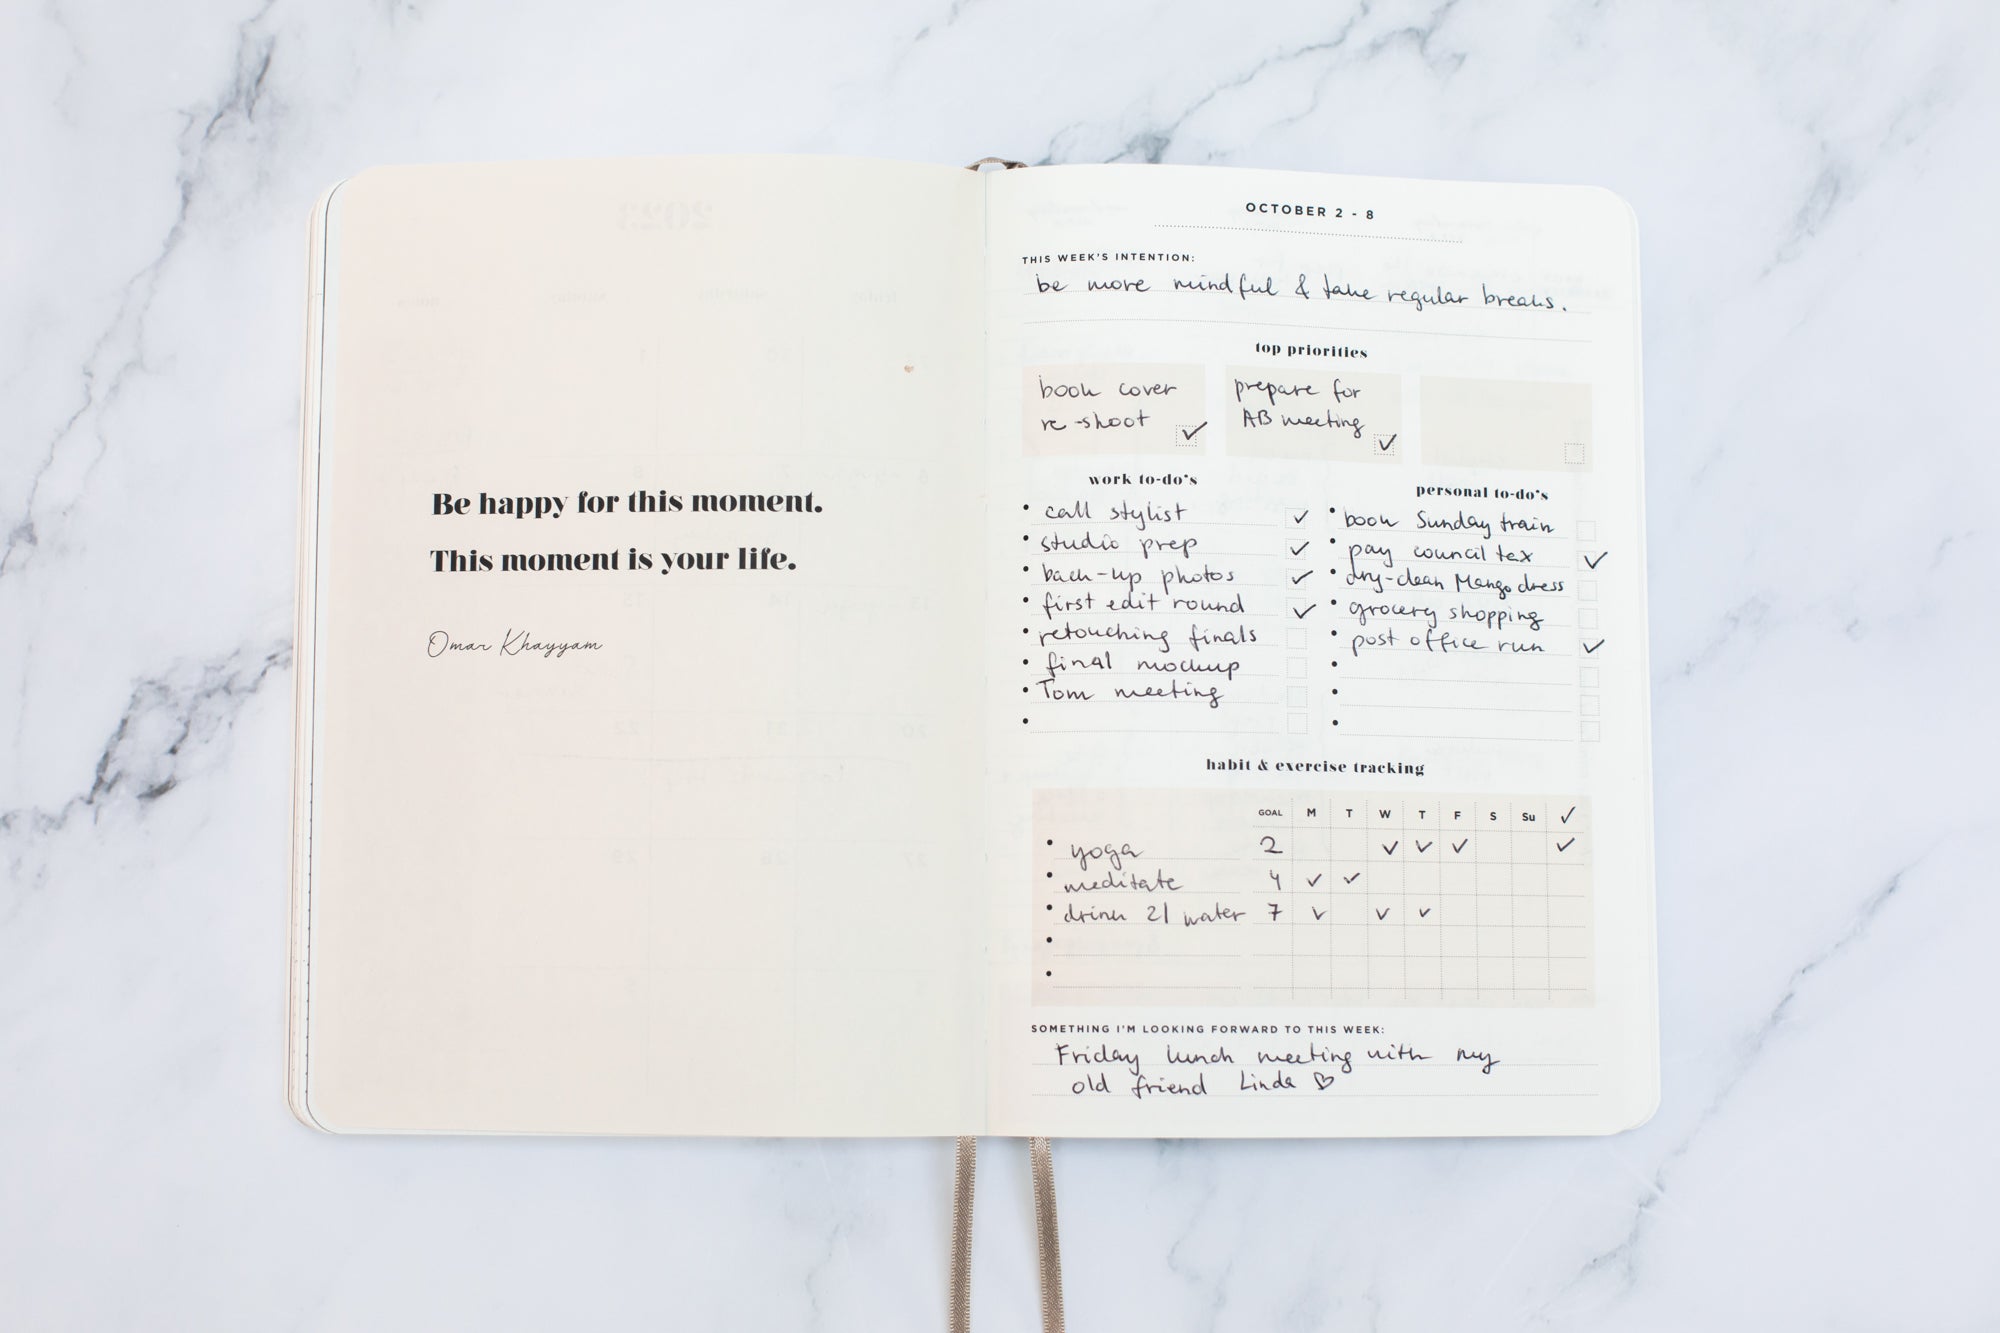 Be happy for this moment.
This moment is your life.
Omar Khayyam
OCTOBER 2 - 8
THIS WEEK'S INTENTION:
be more mindful & take regular breaks.
top priorities
book cover
re-shoot ✓
prepare for
AB meeting ✓
work to-do's
• call stylist ✓
• studio prep ✓
• back-up photos ✓
• first edit round ✓
• retouching finals
• final mockup
• Tom meeting
•
personal to-do's
• book Sunday train
• pay council tax ✓
• dry-clean Mango dress
• grocery shopping
• post office run ✓
•
•
•
habit & exercise tracking
GOAL M T W T F S Su ✓
• yoga 2 ✓ ✓ ✓ ✓
• meditate 4 ✓ ✓
• drink 2l water 7 ✓ ✓ ✓
•
•
SOMETHING I'M LOOKING FORWARD TO THIS WEEK:
Friday lunch meeting with my
old friend Linda ♡